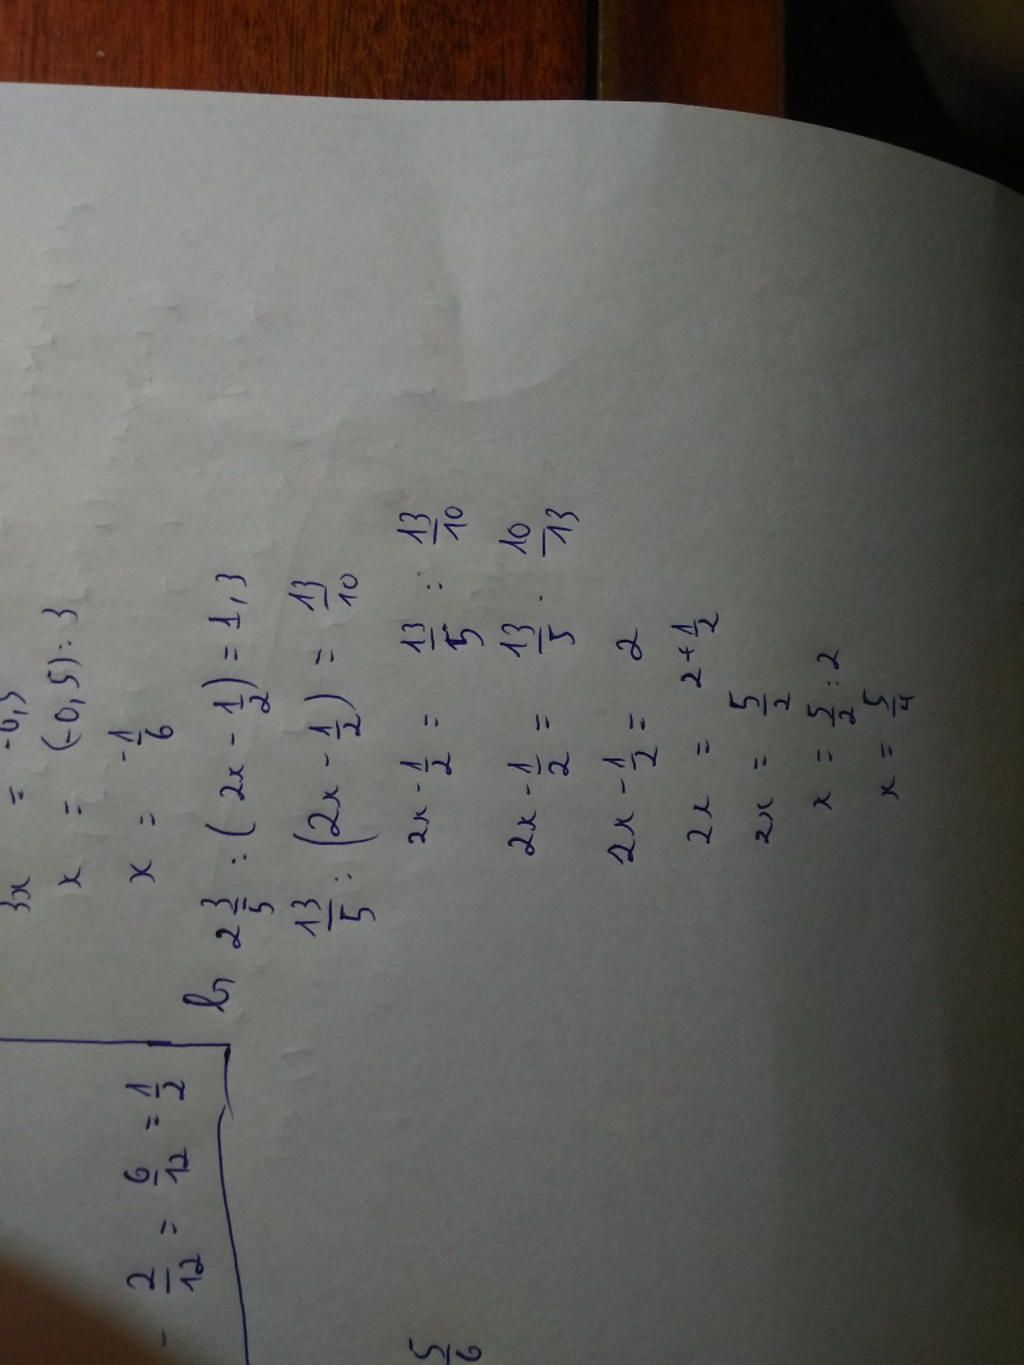 3x = -0,5
x = (-0,5) : 3
x = -1/6
- 2/12 = 6/12 = 1/2
b, 2 3/5 : (2x - 1/2) = 1,3
13/5 : (2x - 1/2) = 13/10
2x - 1/2 = 13/5 : 13/10
2x - 1/2 = 13/5 . 10/13
2x - 1/2 = 2
2x = 2 + 1/2
2x = 5/2
x = 5/2 : 2
x = 5/4
5/6